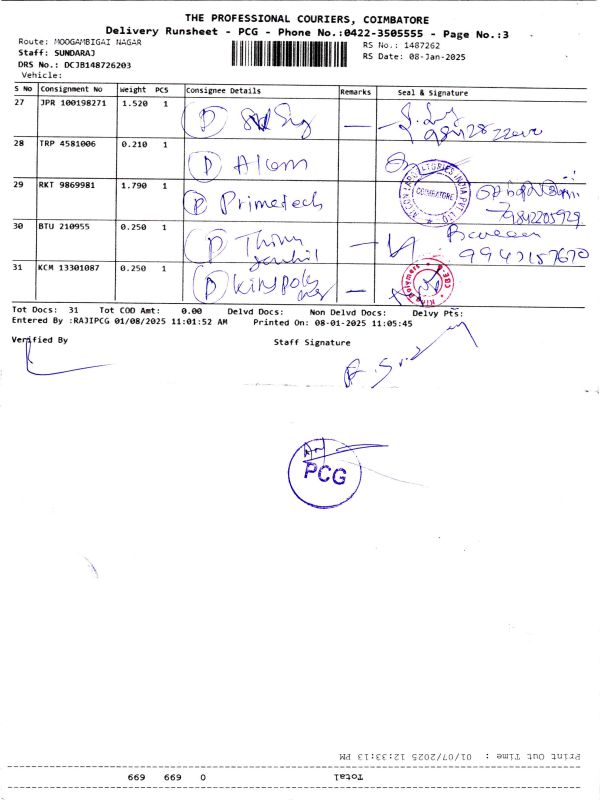 THE PROFESSIONAL COURIERS, COIMBATORE
Delivery Runsheet - PCG - Phone No.:0422-3505555 - Page No.:3
Route: MOOGAMBIGAI NAGAR
RS No.: 1487262
Staff: SUNDARAJ
RS Date: 08-Jan-2025
DRS No.: DCJB148726203
Vehicle:
S No Consignment No Weight PCS Consignee Details Remarks Seal & Signature
27 JPR 100198271 1.520 1
28 TRP 4581006 0.210 1 Alcom
29 RKT 9869981 1.790 1 Primetech
COIMBATORE
9842205929
30 BTU 210955 0.250 1
9943157670
31 KCM 13301087 0.250 1
Tot Docs: 31 Tot COD Amt: 0.00 Delvd Docs: Non Delvd Docs: Delvy Pts:
Entered By :RAJIPCG 01/08/2025 11:01:52 AM Printed On: 08-01-2025 11:05:45
Verified By
Staff Signature
PCG
Print Out Time : 01/07/2025 12:33:13 PM
Total 0 669 669